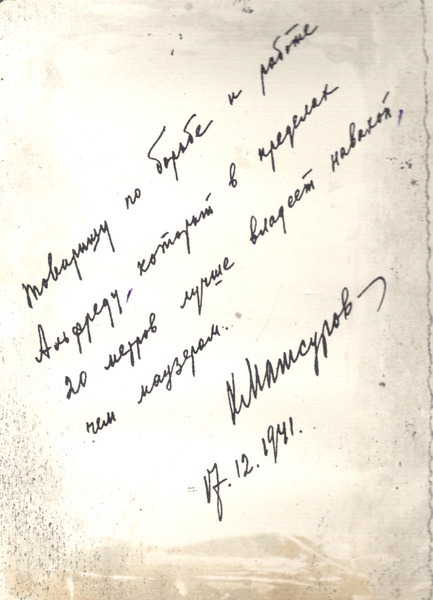 товарищу по борьбе и работе
Альфреду, который в пределах
20 метров лучше владеет навахой,
чем маузером.
Х. Мамсуров
17.12.1941.